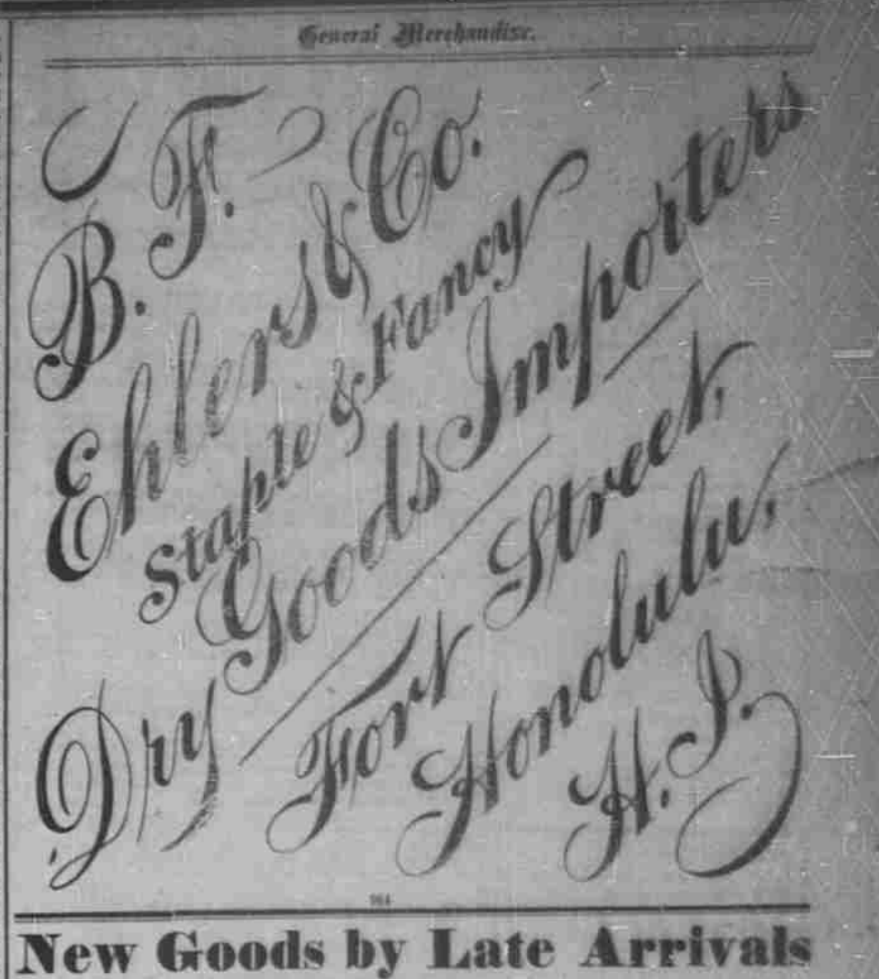 General Merchandise.
B. F.
Ehlers & Co.
Staple & Fancy
Dry Goods Importers
Fort Street,
Honolulu,
H. I.
964
New Goods by Late Arrivals